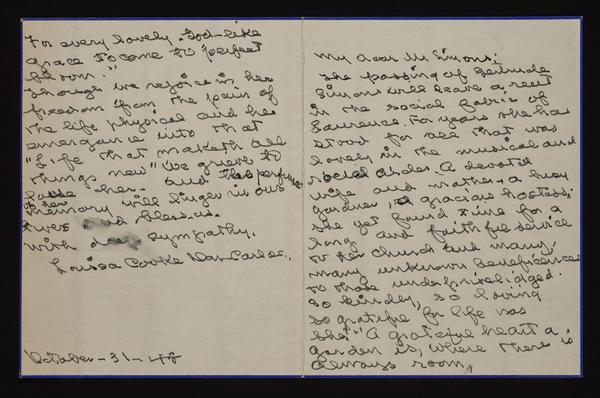 My dear Mr Simons;
The passing of Gertrude
Simons will leave a rent
in the social fabric of
Lawrence. For years she has
stood for all that was
lovely in the musical and
social order. A devoted
wife and mother, a busy
gardner, a gracious hostess,
she yet found time for a
long and faithful service
to her church and many,
many unknown beneficences
to those underprivileged.
So kindly, so loving
so grateful for life was
she. "A grateful heart a
garden is, where there is
always room,
For every lovely God-like
grace to come to perfect
bloom."
Though we rejoice in her
freedom from the pain of
the life physical and her
emergence into that
"Life that maketh all
things new" we grieve to
lose her. And the perfume
of her
memory will linger in our
lives and bless us.
With deep sympathy,
Louisa Cooke Don-Carlos.
October-31-48